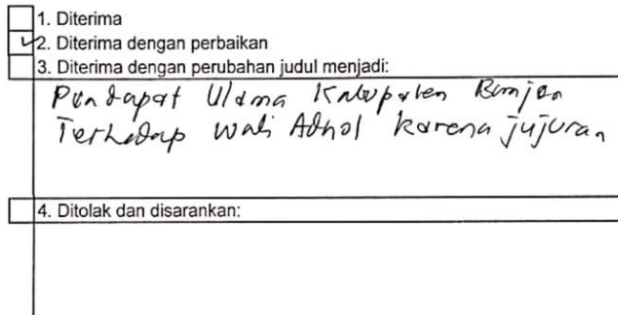 1. Diterima
2. Diterima dengan perbaikan
3. Diterima dengan perubahan judul menjadi:
Pendapat Ulama Kabupaten Banjar
Terhadap wali Adhol karena jujuran
4. Ditolak dan disarankan: